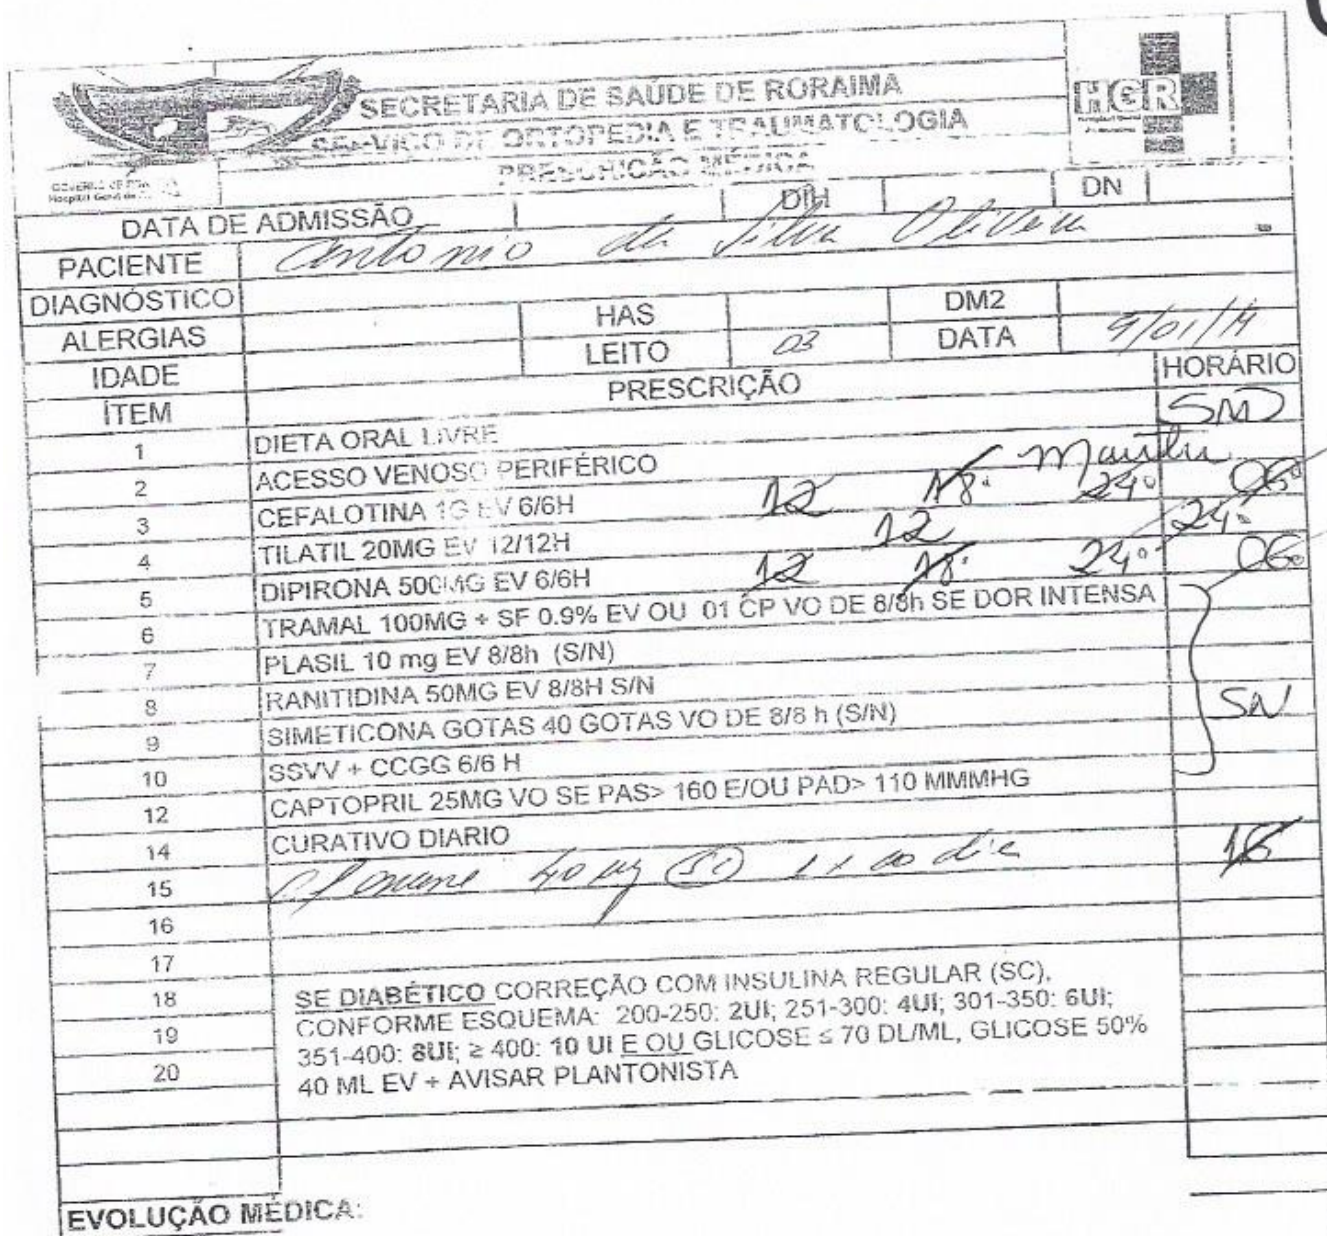 SECRETARIA DE SAÚDE DE RORAIMA
SERVICO DE ORTOPEDIA E TRAUMATOLOGIA
PRESCRIÇÃO MÉDICA
HGR
DATA DE ADMISSÃO DIH DN
PACIENTE Antonio da Silva Oliveira
DIAGNÓSTICO
ALERGIAS HAS DM2
IDADE LEITO 03 DATA 9/01/19
ÍTEM PRESCRIÇÃO HORÁRIO
1 DIETA ORAL LIVRE SND
2 ACESSO VENOSO PERIFÉRICO
3 CEFALOTINA 1G EV 6/6H 12 18 24 06
4 TILATIL 20MG EV 12/12H 12 24
5 DIPIRONA 500MG EV 6/6H 12 18 24 06
6 TRAMAL 100MG + SF 0.9% EV OU 01 CP VO DE 8/8h SE DOR INTENSA
7 PLASIL 10 mg EV 8/8h (S/N)
8 RANITIDINA 50MG EV 8/8H S/N SN
9 SIMETICONA GOTAS 40 GOTAS VO DE 8/8 h (S/N)
10 SSVV + CCGG 6/6 H
12 CAPTOPRIL 25MG VO SE PAS> 160 E/OU PAD> 110 MMMHG
14 CURATIVO DIARIO
15 40 mg 1x ao dia
16
17
18 SE DIABÉTICO CORREÇÃO COM INSULINA REGULAR (SC),
19 CONFORME ESQUEMA: 200-250: 2UI; 251-300: 4UI; 301-350: 6UI;
20 351-400: 8UI; ≥ 400: 10 UI E OU GLICOSE ≤ 70 DL/ML, GLICOSE 50%
40 ML EV + AVISAR PLANTONISTA
EVOLUÇÃO MÉDICA: